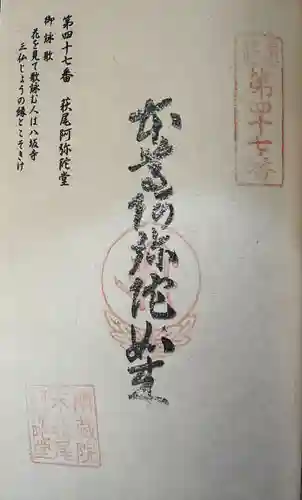 第四十七番　萩尾阿弥陀堂
御詠歌
花を見て歌詠む人は八坂寺
三仏じょうの縁とこそきけ
第四十七番
本尊阿弥陀如来